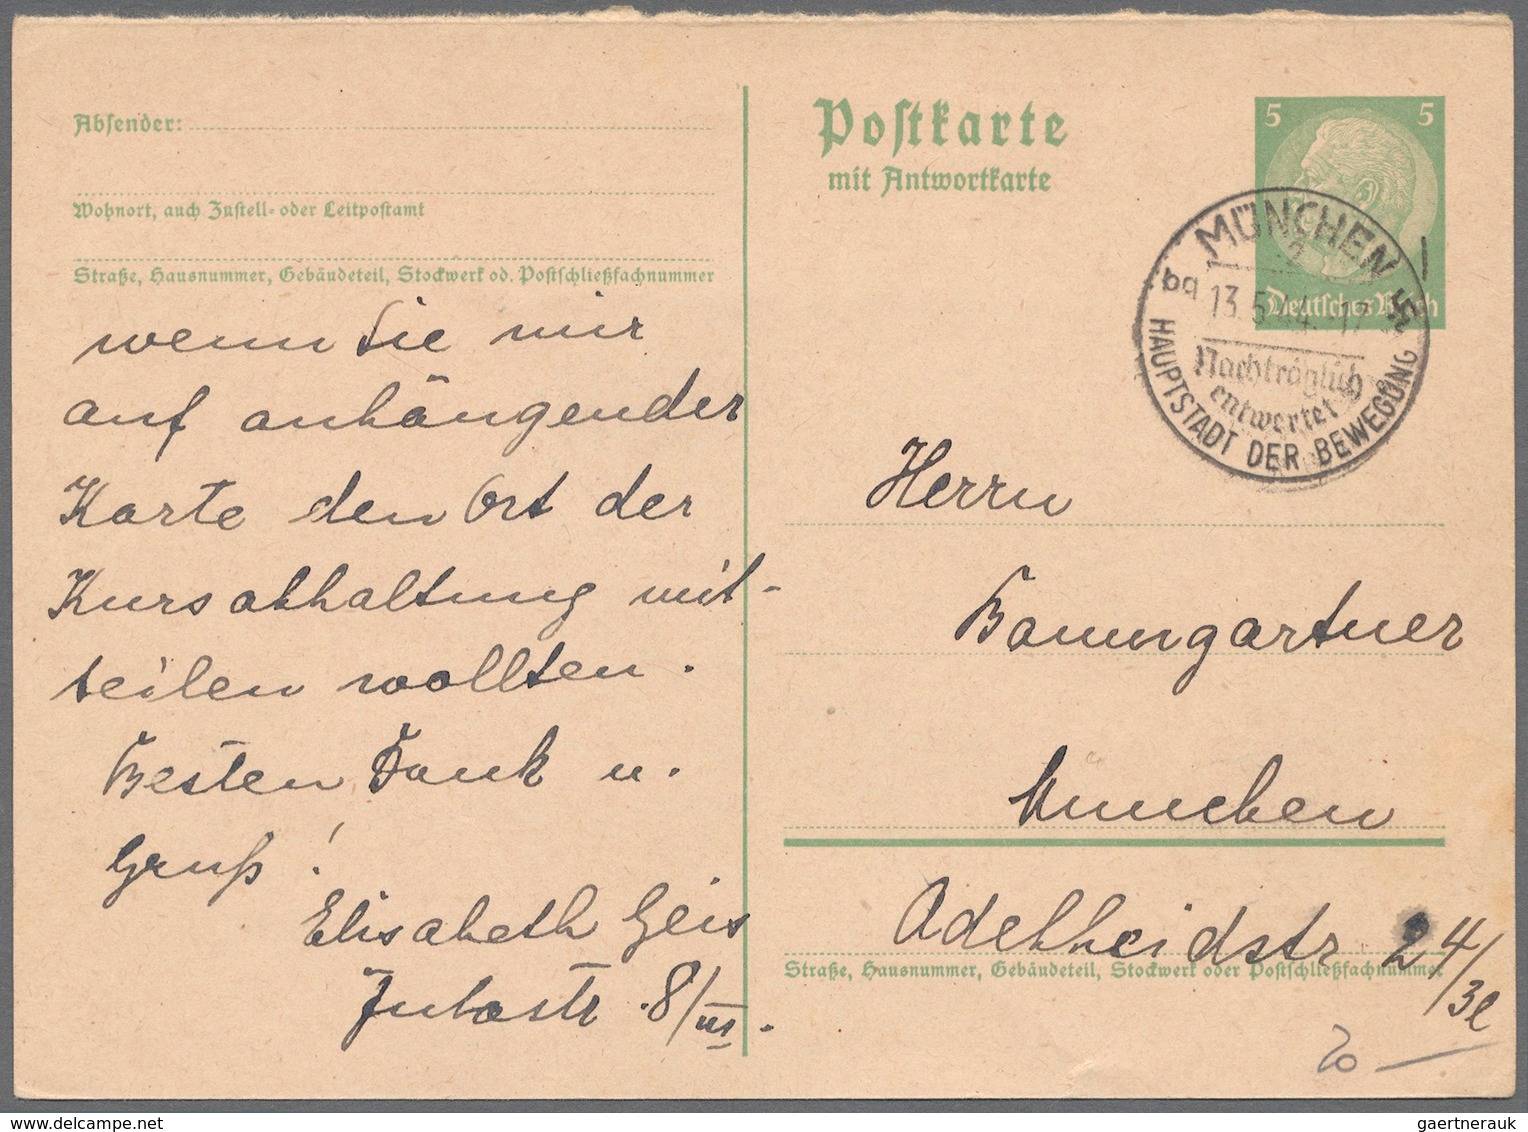 Absender:
Wohnort, auch Zustell- oder Leitpostamt
Straße, Hausnummer, Gebäudeteil, Stockwerk od. Postschließfachnummer
wenn Sie mir
auf anhängender
Karte den Ort der
Kursabhaltung mit-
teilen wollten.
Besten Dank u.
Gruß!
Elisabeth Geis
Jutastr. 8/III.
Postkarte
mit Antwortkarte
5 5
Deutsches Reich
MÜNCHEN
2
bq 13.5.44. 17
Nachträglich
entwertet
HAUPTSTADT DER BEWEGUNG
Herrn
Baumgartner
München
Adelheidstr 24/3l
Straße, Hausnummer, Gebäudeteil, Stockwerk oder Postschließfachnummer
20 —
gaertnerauk @ delcampe.net